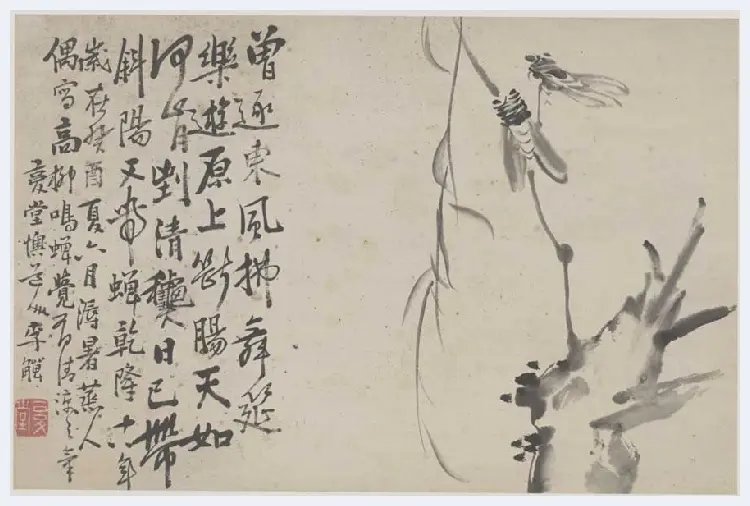 曾逐東風拂舞筵
樂遊原上斷腸天如
何肯到清龝日已帶
斜陽又帶蟬乾隆十八年
歲在癸酉夏六月溽暑蒸人
偶寫高柳鳴蟬覺有清涼之氣
复堂懊道人李鱓